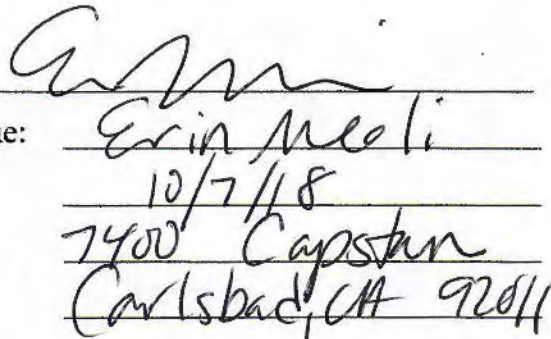 ne: Erin Meoli
10/7/18
7400 Capstan
Carlsbad, CA 92011